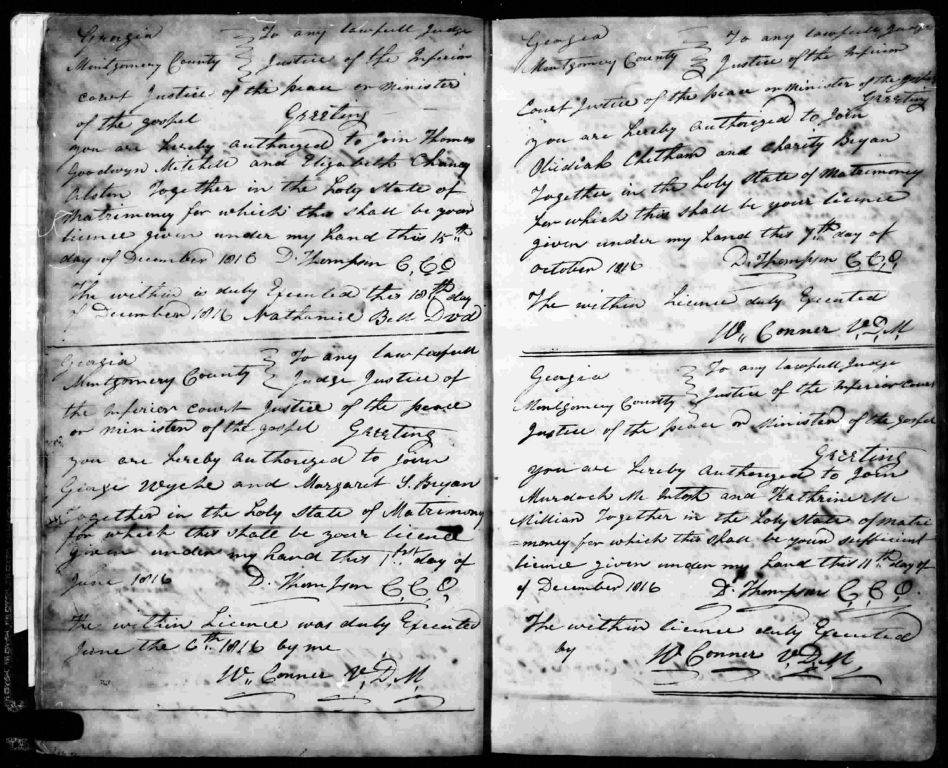 Georgia To any lawfull Judge
Montgomery County Justice of the Inferior
court Justice of the peace or minister
of the gospel Greeting
you are hereby authorized to join Thomas
Goodwyn Mitchell and Elizabeth Chancy
Alston Together in the holy state of
Matrimoney for which this shall be your
licence given under my hand this 15th
day of December 1816 D. Thompson C,C,O
The within is duly Executed this 18th day
of December 1816 Nathaniel Bell
Georgia To any lawfull
Montgomery County Judge Justice of
the inferior court Justice of the peace
or minister of the gospel Greeting
you are hereby authorized to join
George Wyche and Margaret S. Bryan
Together in the holy State of Matrimony
for which this shall be your licence
given under my hand this 1st day of
June 1816 D. Thompson C,C,O
The within Licence was duly Executed
June the 6th 1816 by me
W. Conner V,D,M,
Georgia To any lawfull Judge
Montgomery County Justice of the Inferior
Court Justice of the peace or minister of the gospel
Greeting
you are hereby authorized to Join
Chitham and Charity Bryan
Together in the holy state of Matrimoney
for which this shall be your licence
given under my hand this 7th day of
October 1816 D. Thompson C,C,O,
The within Licence duly Executed
W. Conner V,D,M
Georgia To any lawfull Judge
Montgomery County Justice of the Inferior court
Justice of the peace or Minister of the gospel
Greeting
you are hereby Authorized to Join
Murdoch Mc Intosh and Kathrine Mc
Millian Together in the holy state of matri
=money for which this shall be your sufficient
licence given under my hand this 11th day of
of December 1816 D. Thompson C,C,O.
The within licence duly Executed
by W Conner V,D,M